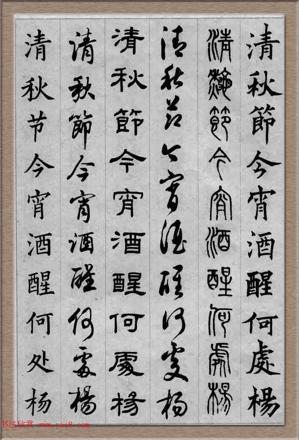 清秋節今宵酒醒何處楊
清秋節今宵酒醒何處楊
清秋節今宵酒醒何處楊
清秋節今宵酒醒何處楊
清秋節今宵酒醒何處楊
清秋节今宵酒醒何处杨